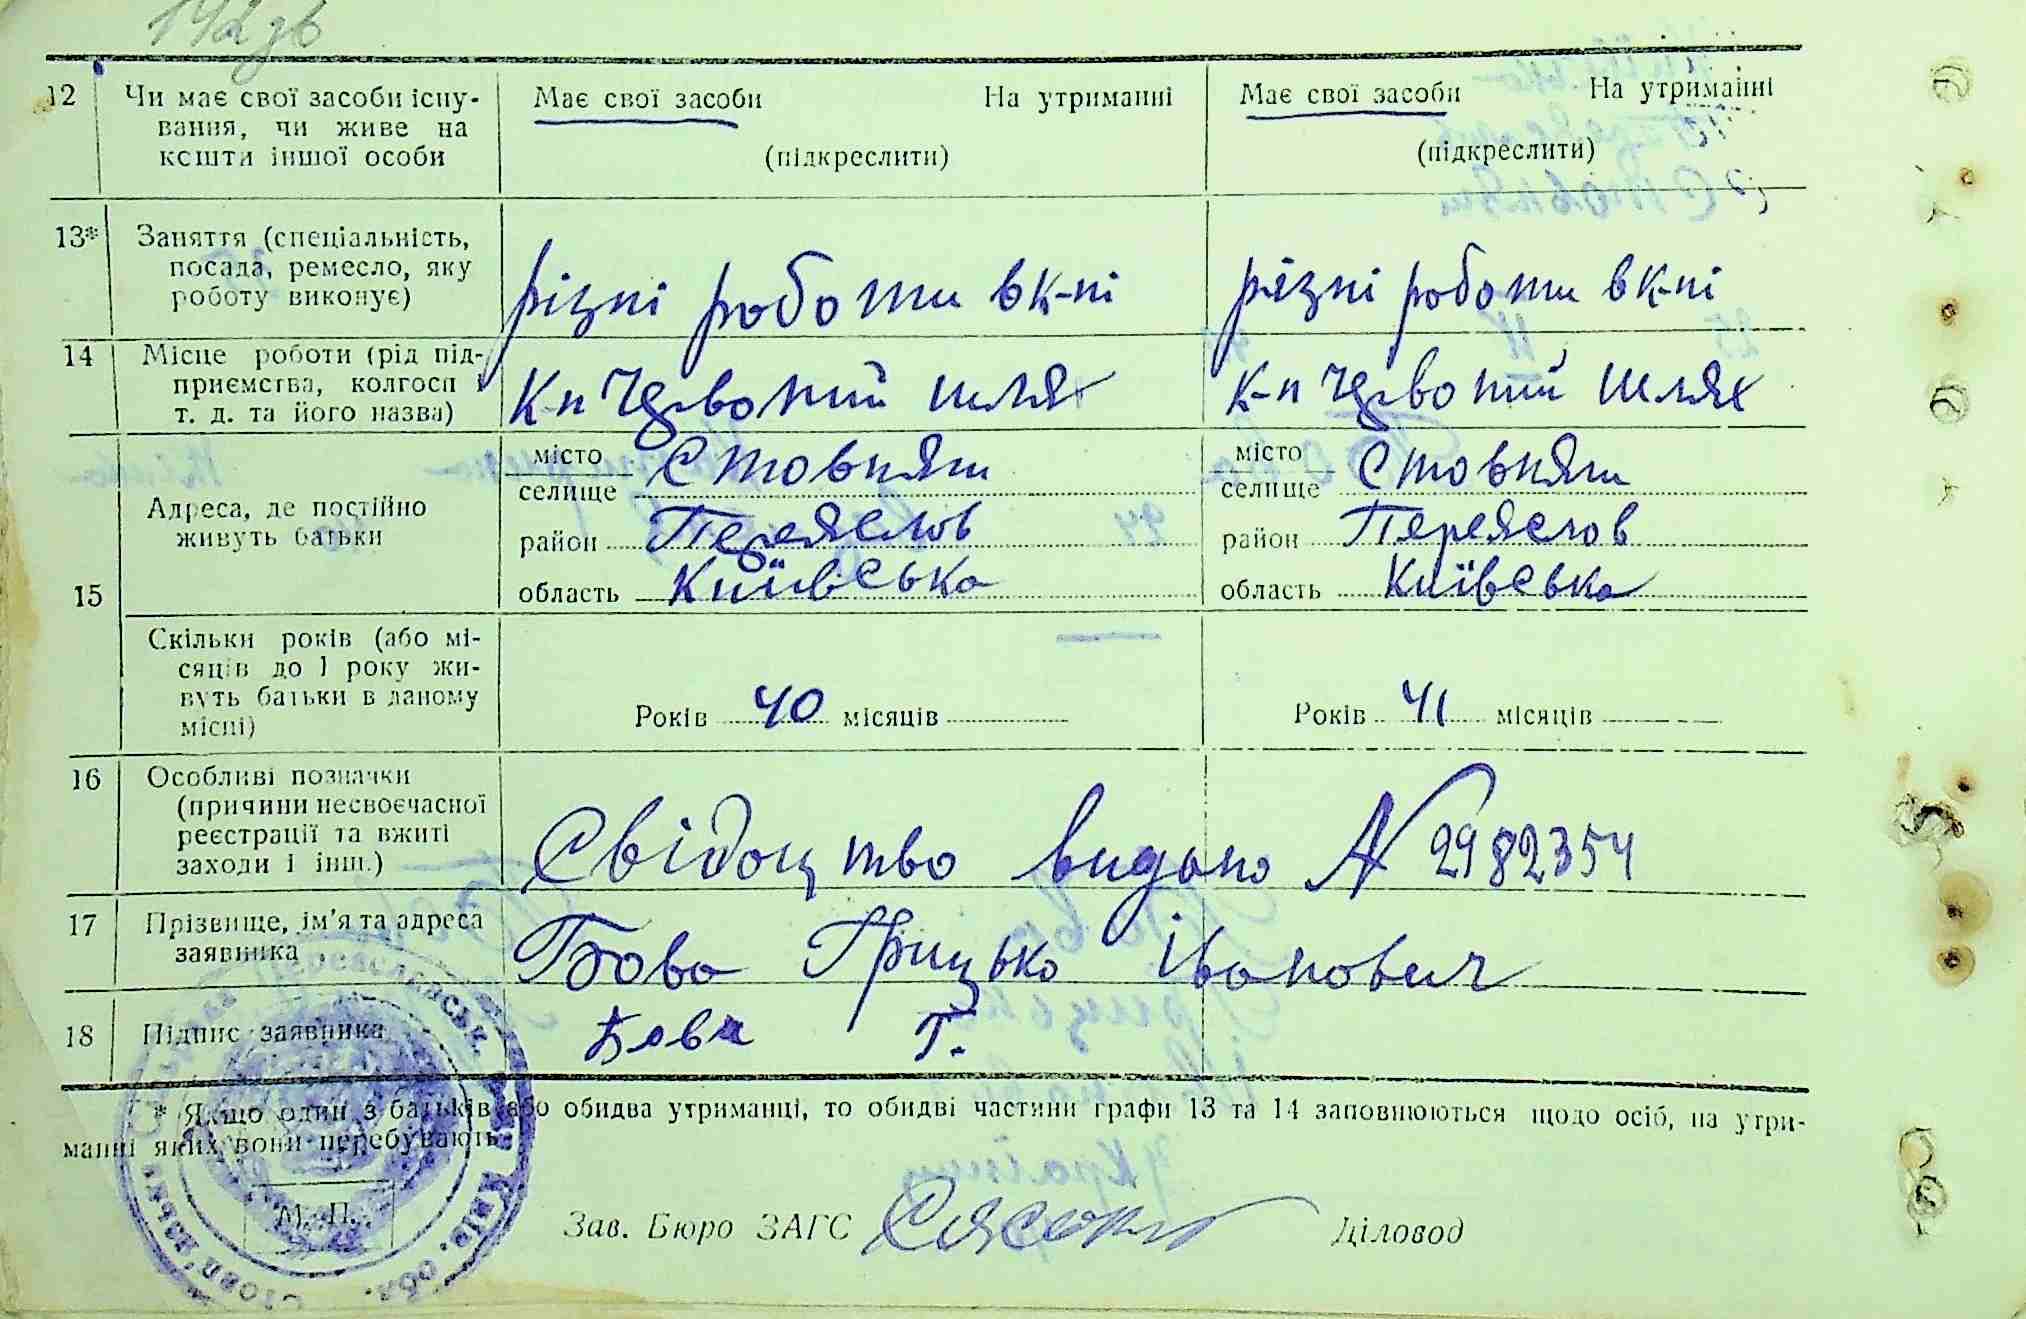 12 Чи має свої засоби існу- Має свої засоби На утриманні Має свої засоби На утриманні
вання, чи живе на
кошти іншої особи (підкреслити) (підкреслити)
13* Заняття (спеціальність,
посада, ремесло, яку різні роботи в к-пі різні роботи в к-пі
роботу виконує)
14 Місце роботи (рід під-
приємства, колгосп і К-п Червоний шлях к-п Червоний шлях
т. д. та його назва)
місто Стовпяги місто Стовпяги
селище селище
15 Адреса, де постійно район Переяслов район Переяслов
живуть батьки область Київська область Київська
Скільки років (або мі-
сяців до 1 року жи-
вуть батьки в даному Років 40 місяців Років 41 місяців
місці)
16 Особливі позначки
(причини несвоєчасної
реєстрації та вжиті Свідоцтво видано № 2982354
заходи і інш.)
17 Прізвище, ім'я та адреса Бова Грицько Іванович
заявника
18 Підпис заявника Бова Г.
* Якщо один з батьків або обидва утриманці, то обидві частини графи 13 та 14 заповнюються щодо осіб, на утри-
манні яких вони перебувають.
М. П.
Зав. Бюро ЗАГС Діловод